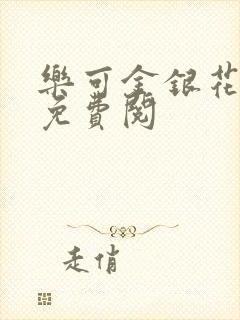 樂可金銀花
免費閱
走俏